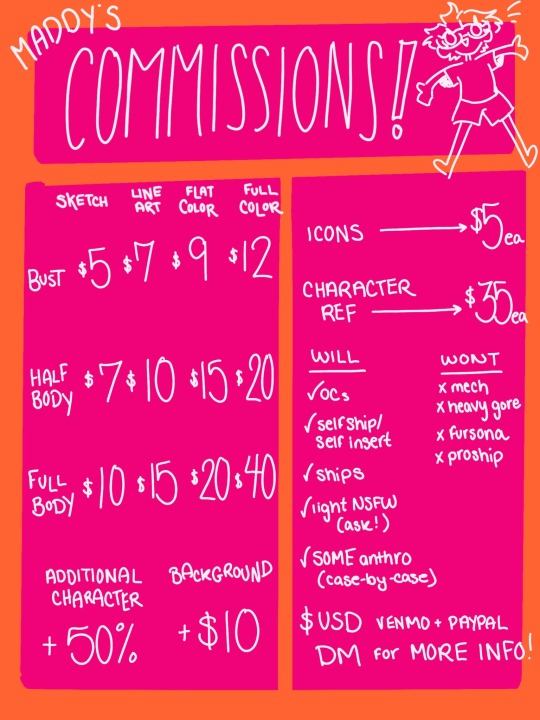 MADDY'S
COMMISSIONS!
SKETCH LINE ART FLAT COLOR FULL COLOR
BUST $5 $7 $9 $12
HALF BODY $7 $10 $15 $20
FULL BODY $10 $15 $20 $40
ADDITIONAL CHARACTER
+ 50%
BACKGROUND
+ $10
ICONS $5 ea
CHARACTER
REF $35 ea
WILL
✓ OCs
✓ selfship/
self insert
✓ ships
✓ light NSFW
(ask!)
✓ SOME anthro
(case-by-case)
WONT
x mech
x heavy gore
x fursona
x proship
$ USD VENMO + PAYPAL
DM for MORE INFO!